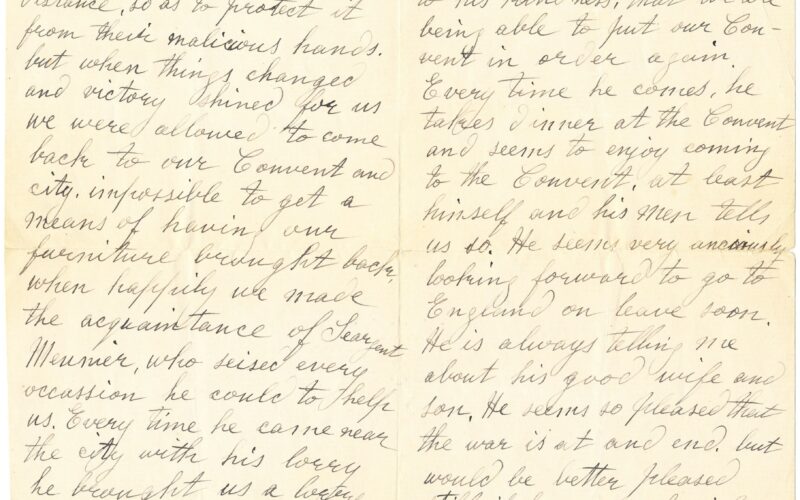 distance, so as to protect it
from their malicious hands.
but when things changed
and victory shined for us
we were allowed to come
back to our Convent and
city. impossible to get a
means of havin our
furniture brought back,
when happily we made
the acquaintance of Seargent
Meunier, who seised every
occassion he could to help
us. Every time he came near
the city with his lorry
he brought us a
to his kindness, that we are
being able to put our Con-
vent in order again.
Every time he comes, he
takes dinner at the Convent
and seems to enjoy coming
to the Convent, at least
himself and his men tells
us so. He seems very anciously
looking forward to go to
England on leave soon.
He is always telling me
about his good wife and
son. He seems so pleased that
the war is at and end. but
would be better pleased